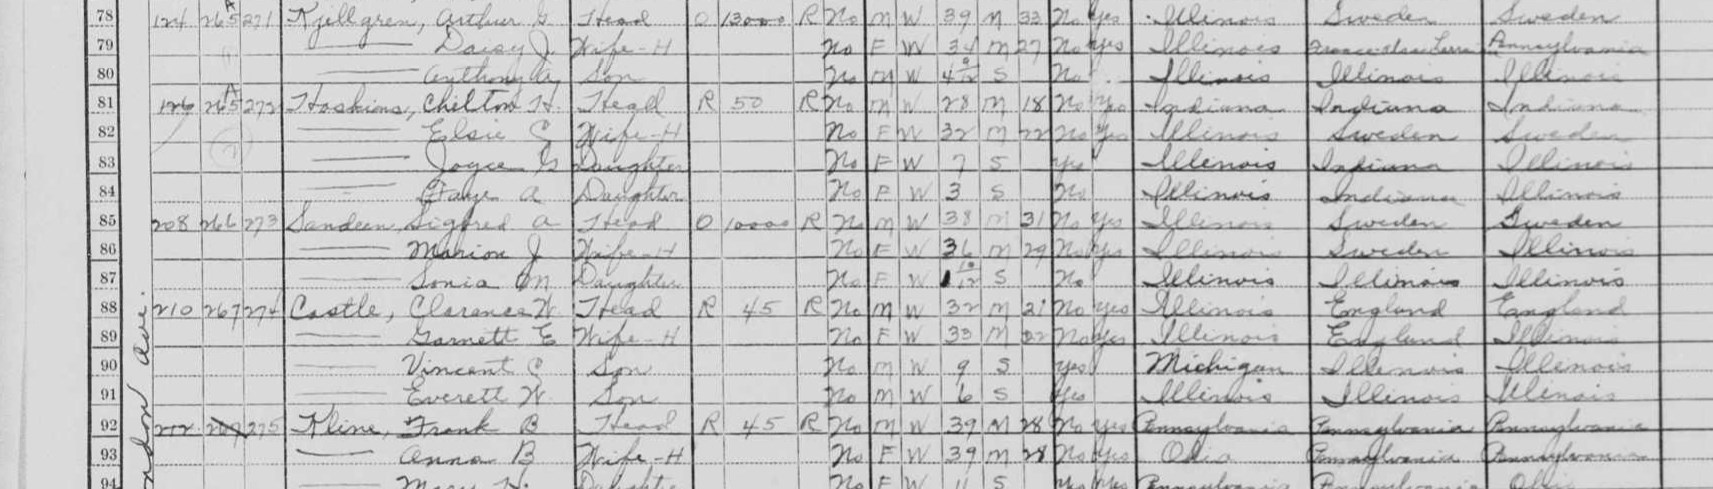 78 124 265 A 271 Kjellgren, Arthur G. Head O 13000 R No M W 39 M 33 No Yes Illinois Sweden Sweden
79 —— Daisy J. Wife-H No F W 34 M 27 No Yes Illinois Pennsylvania
80 —— Anthony A. Son No M W 4 9/12 S No Illinois Illinois Illinois
81 126 265 A 272 Hoskins, Chilton H. Head R 50 R No M W 28 M 18 No Yes Indiana Indiana Indiana
82 —— Elsie C Wife-H No F W 32 M 22 No Yes Illinois Sweden Sweden
83 —— Joyce G Daughter No F W 7 S Yes Illinois Indiana Illinois
84 —— Faye A Daughter No F W 3 S No Illinois Indiana Illinois
85 208 266 273 Sandeen, Sigfred A Head O 10000 R No M W 38 M 31 No Yes Illinois Sweden Sweden
86 —— Marion J Wife-H No F W 36 M 29 No Yes Illinois Sweden Illinois
87 —— Sonia M Daughter No F W 1 10/12 S No Illinois Illinois Illinois
88 210 267 274 Castle, Clarence W. Head R 45 R No M W 32 M 21 No Yes Illinois England England
89 —— Garnett E Wife-H No F W 33 M 22 No Yes Illinois England Illinois
90 —— Vincent C Son No M W 9 S Yes Michigan Illinois Illinois
91 —— Everett W. Son No M W 6 S Yes Illinois Illinois Illinois
92 212 267 275 Kline, Frank B Head R 45 R No M W 39 M 28 No Yes Pennsylvania Pennsylvania Pennsylvania
93 —— Anna B Wife-H No F W 39 M 28 No Yes Ohio Pennsylvania Pennsylvania
94 —— Mary H. Daughter No F W 11 S Yes Yes Pennsylvania Pennsylvania Ohio
ndon Ave.